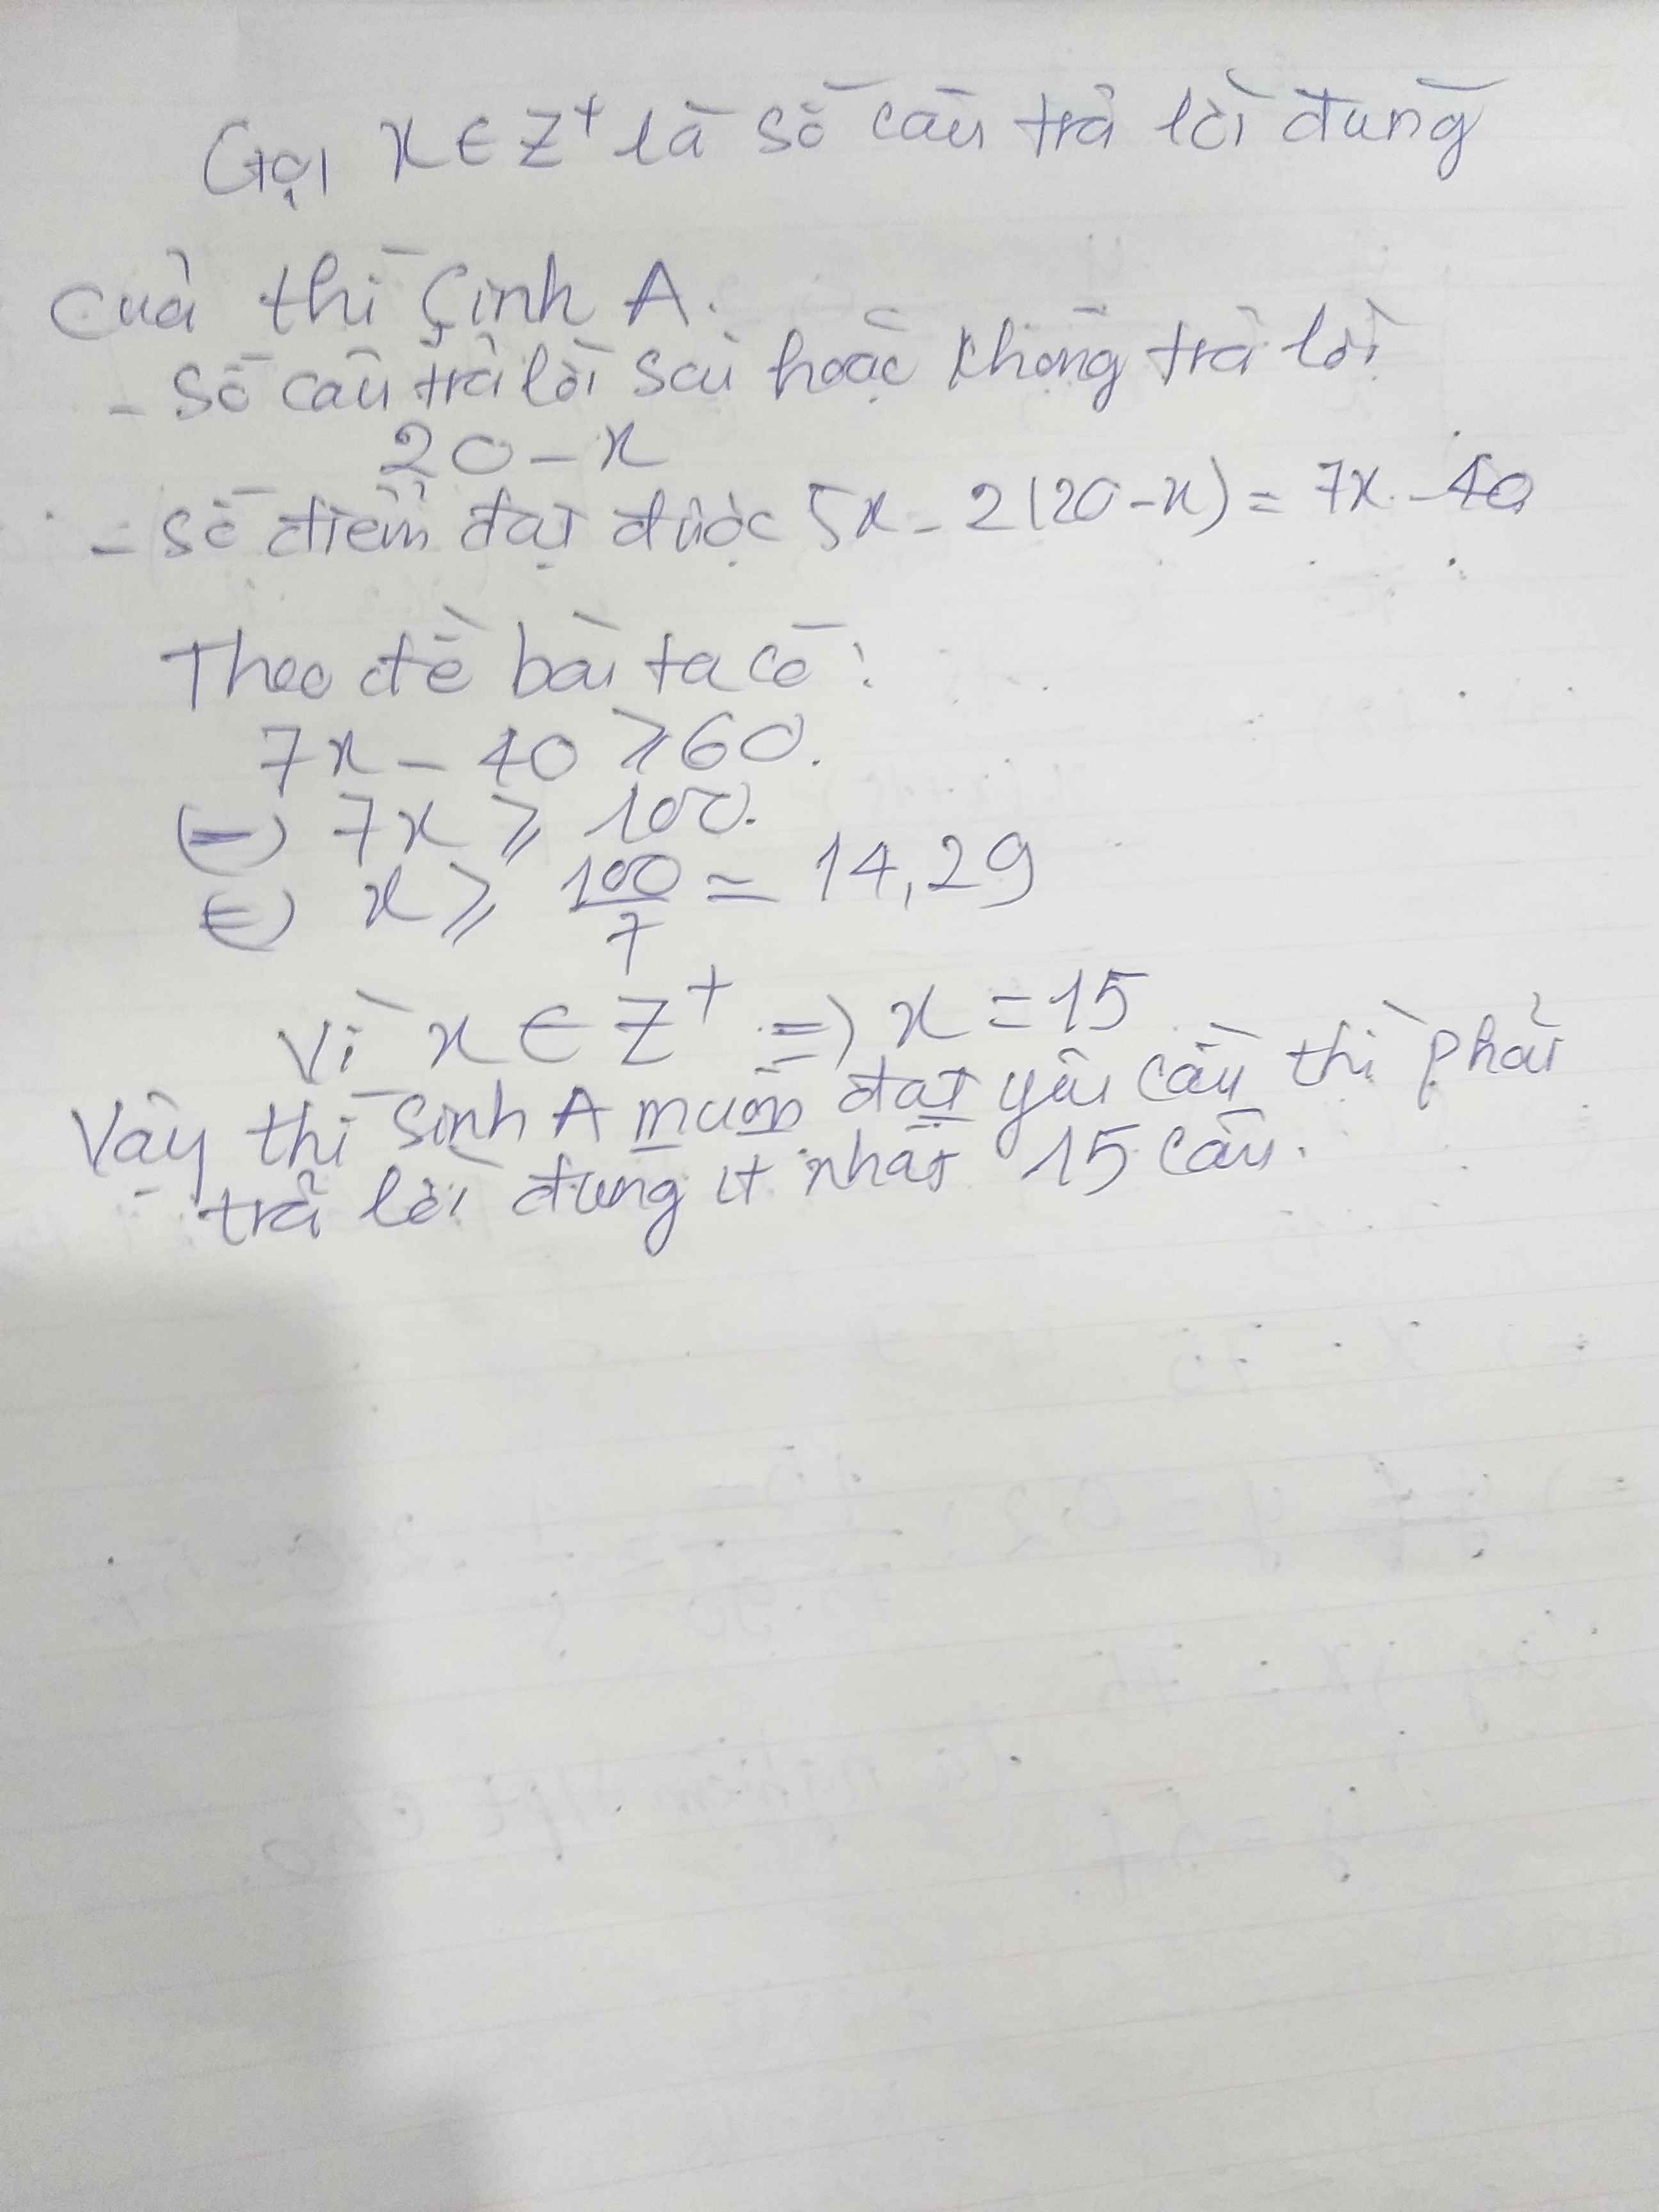 Gọi x ∈ Z⁺ là số câu trả lời đúng
của thí sinh A.
- Số câu trả lời sai hoặc không trả lời
20 - x
- Số điểm đạt được 5x - 2(20 - x) = 7x - 40
Theo đề bài ta có:
7x - 40 ⩾ 60.
(=) 7x ⩾ 100.
(=) x ⩾ 100/7 = 14,29
Vì x ∈ Z⁺ => x = 15
Vậy thí sinh A muốn đạt yêu cầu thì phải
trả lời đúng ít nhất 15 câu.